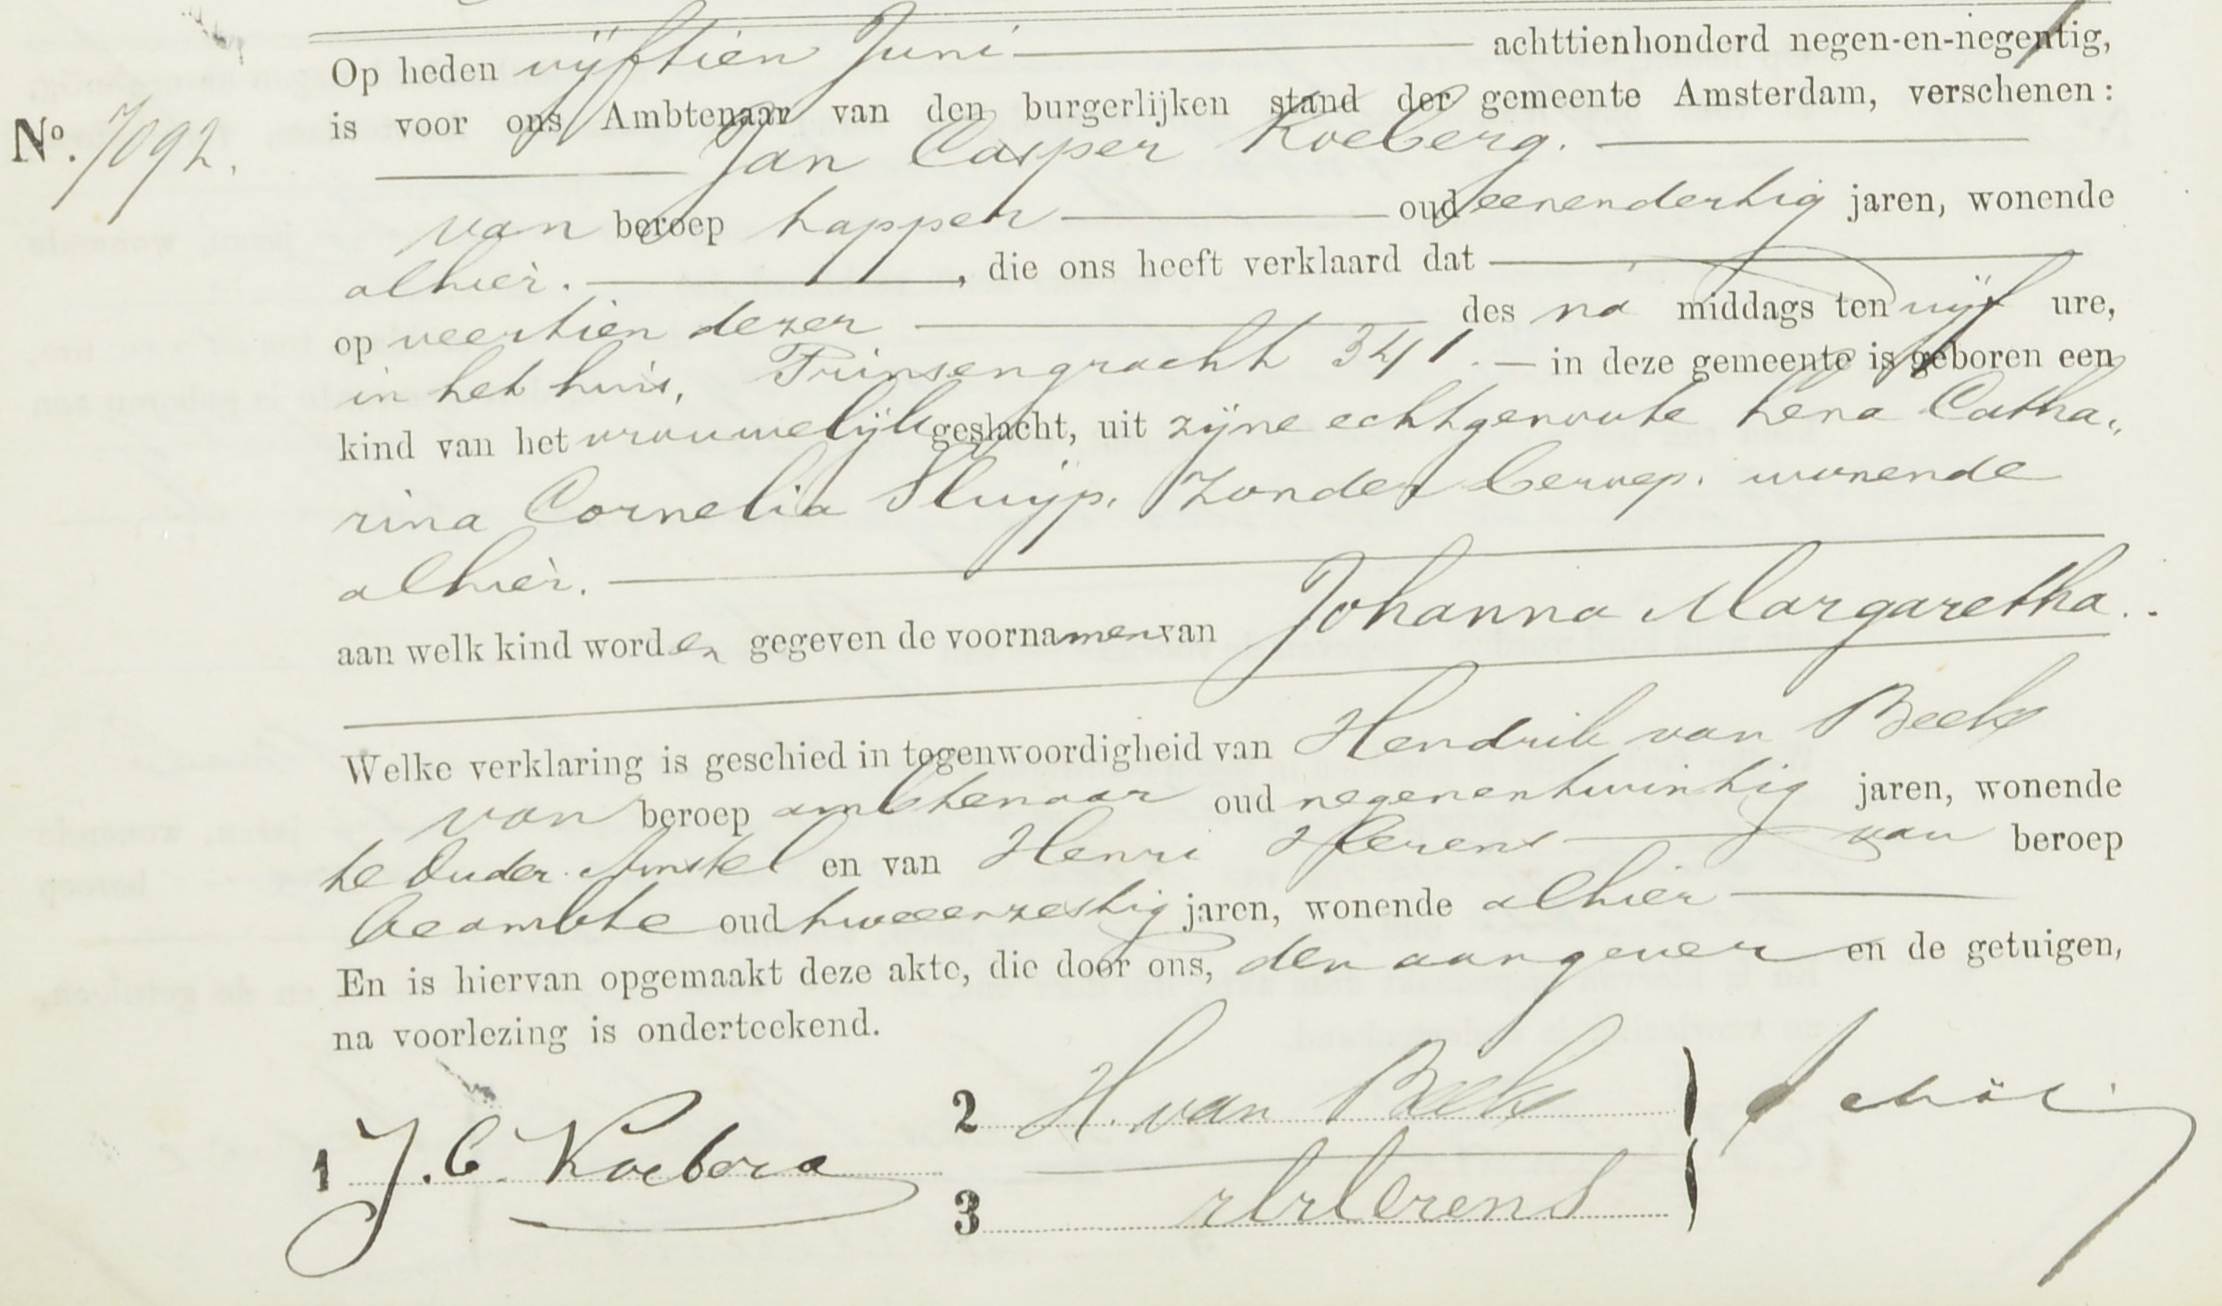 Op heden vijftien Juni achttienhonderd negen-en-negentig,
is voor ons Ambtenaar van den burgerlijken stand der gemeente Amsterdam, verschenen:
No. 7092.
Jan Casper Koeberg.
van beroep kapper oud eenendertig jaren, wonende
alhier. , die ons heeft verklaard dat
op veertien dezer des na middags ten vijf ure,
in het huis, Prinsengracht 341. in deze gemeente is geboren een
kind van het vrouwelijk geslacht, uit zijne echtgenoote Lena Catha„
rina Cornelia Sluijp. zonder beroep. wonende
alhier.
aan welk kind worden gegeven de voornamen van Johanna Margaretha.
Welke verklaring is geschied in tegenwoordigheid van Hendrik van Beek
van beroep ambtenaar oud negenentwintig jaren, wonende
te Ouder-Amstel en van Henri van beroep
beambte oud tweeenzestig jaren, wonende alhier
En is hiervan opgemaakt deze akte, die door ons, den aangever en de getuigen,
na voorlezing is onderteekend.
1 J. C. Koeberg
2 H. van Beek
3